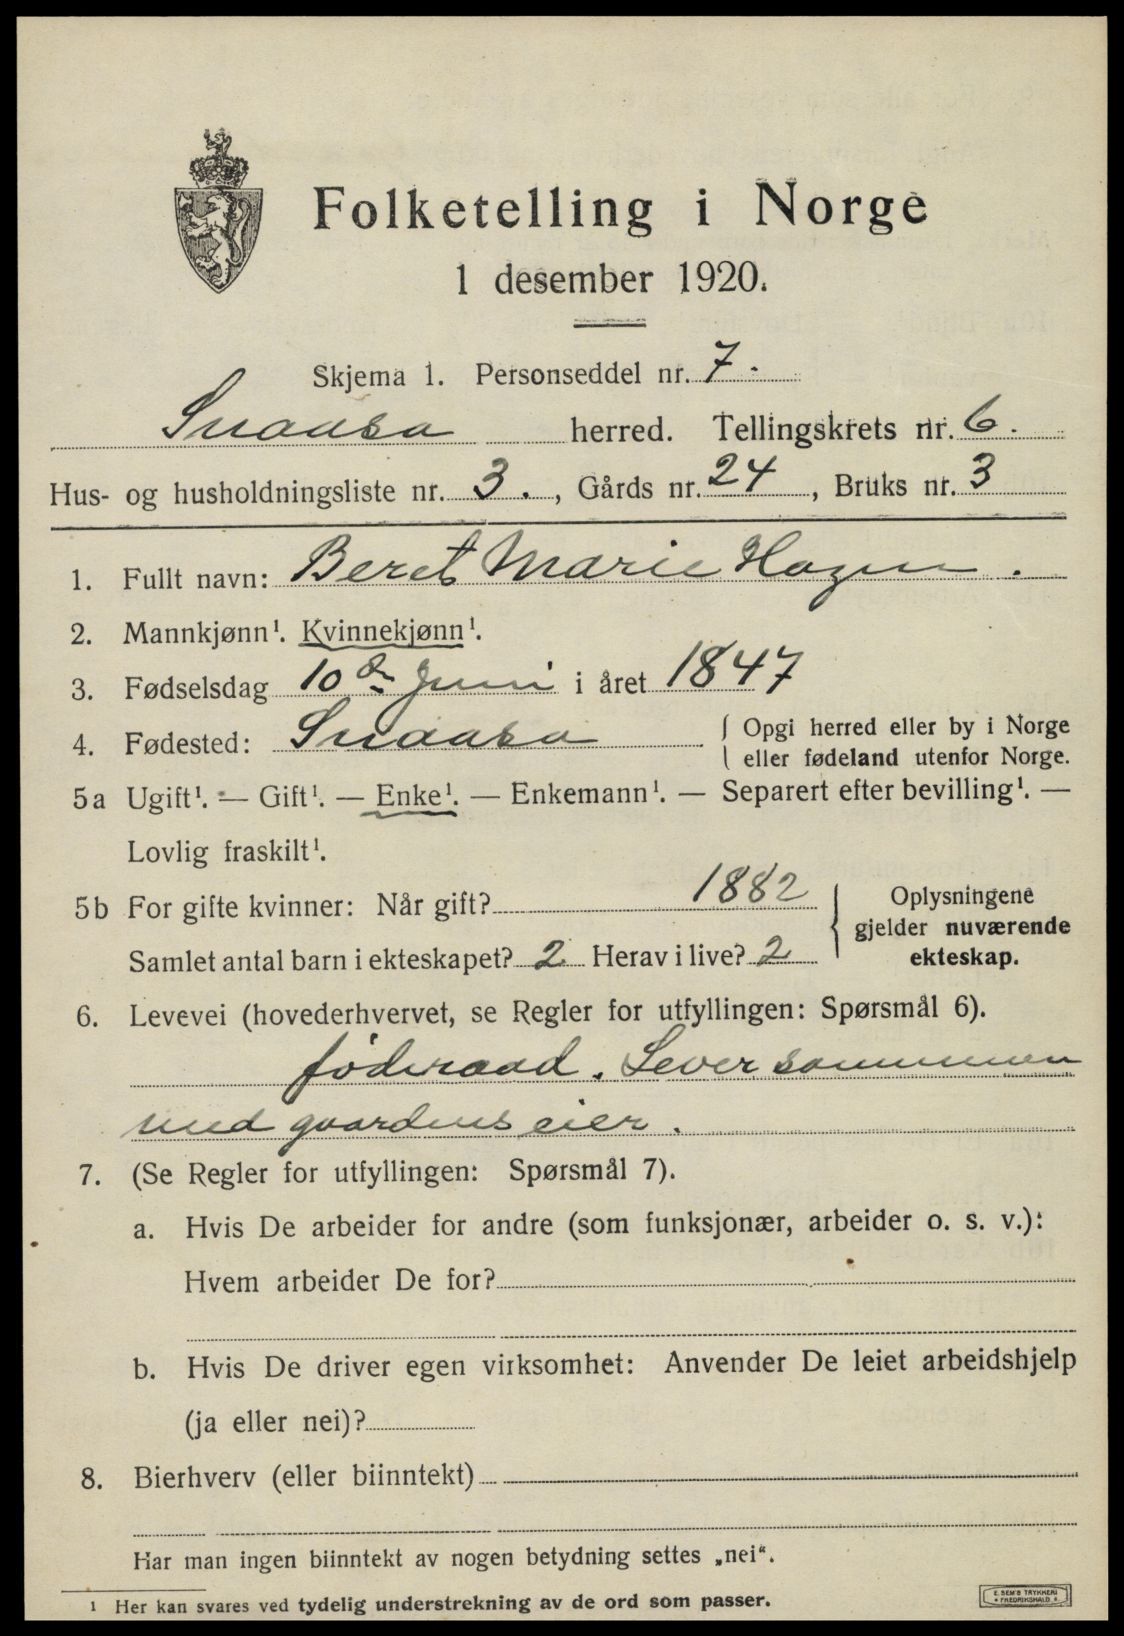 Folketelling i Norge
1 desember 1920.
Skjema 1. Personseddel nr. 7.
Snaasa herred. Tellingskrets nr. 6.
Hus- og husholdningsliste nr. 3., Gårds nr. 24, Bruks nr. 3
1. Fullt navn: Beret Marie Hagen.
2. Mannkjønn¹. Kvinnekjønn¹.
3. Fødselsdag 10de Juni i året 1847
4. Fødested: Snaasa { Opgi herred eller by i Norge
eller fødeland utenfor Norge.
5a Ugift¹. — Gift¹. — Enke¹. — Enkemann¹. — Separert efter bevilling¹. —
Lovlig fraskilt¹.
5b For gifte kvinner: Når gift? 1882
Samlet antal barn i ekteskapet? 2 Herav i live? 2
Oplysningene
gjelder nuværende
ekteskap.
6. Levevei (hovederhvervet, se Regler for utfyllingen: Spørsmål 6).
føderaad. Lever sammen
med gaardens eier.
7. (Se Regler for utfyllingen: Spørsmål 7).
a. Hvis De arbeider for andre (som funksjonær, arbeider o. s. v.):
Hvem arbeider De for?
b. Hvis De driver egen virksomhet: Anvender De leiet arbeidshjelp
(ja eller nei)?
8. Bierhverv (eller biinntekt)
Har man ingen biinntekt av nogen betydning settes „nei“.
¹ Her kan svares ved tydelig understrekning av de ord som passer.
E. SEM'S TRYKKERI
FREDRIKSHALD